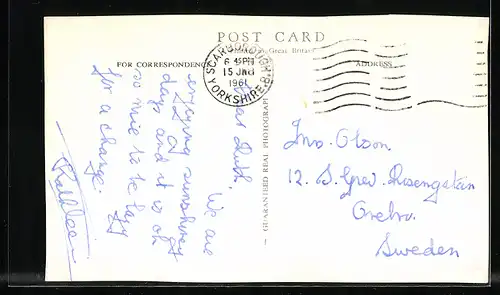 POST CARD
Great Britain
FOR CORRESPONDENCE
ADDRESS
SCARBOROUGH
6 45PM
15 JNE
1961
YORKSHIRE
GUARANTEED REAL PHOTOGRAPH
Dear Ruth.
We are
enjoying sunshiney
days and it is oh
so nice to be lazy
for a change.
Kathleen
Olson.
12. S. Grev Rosengatan
Orebro.
Sweden